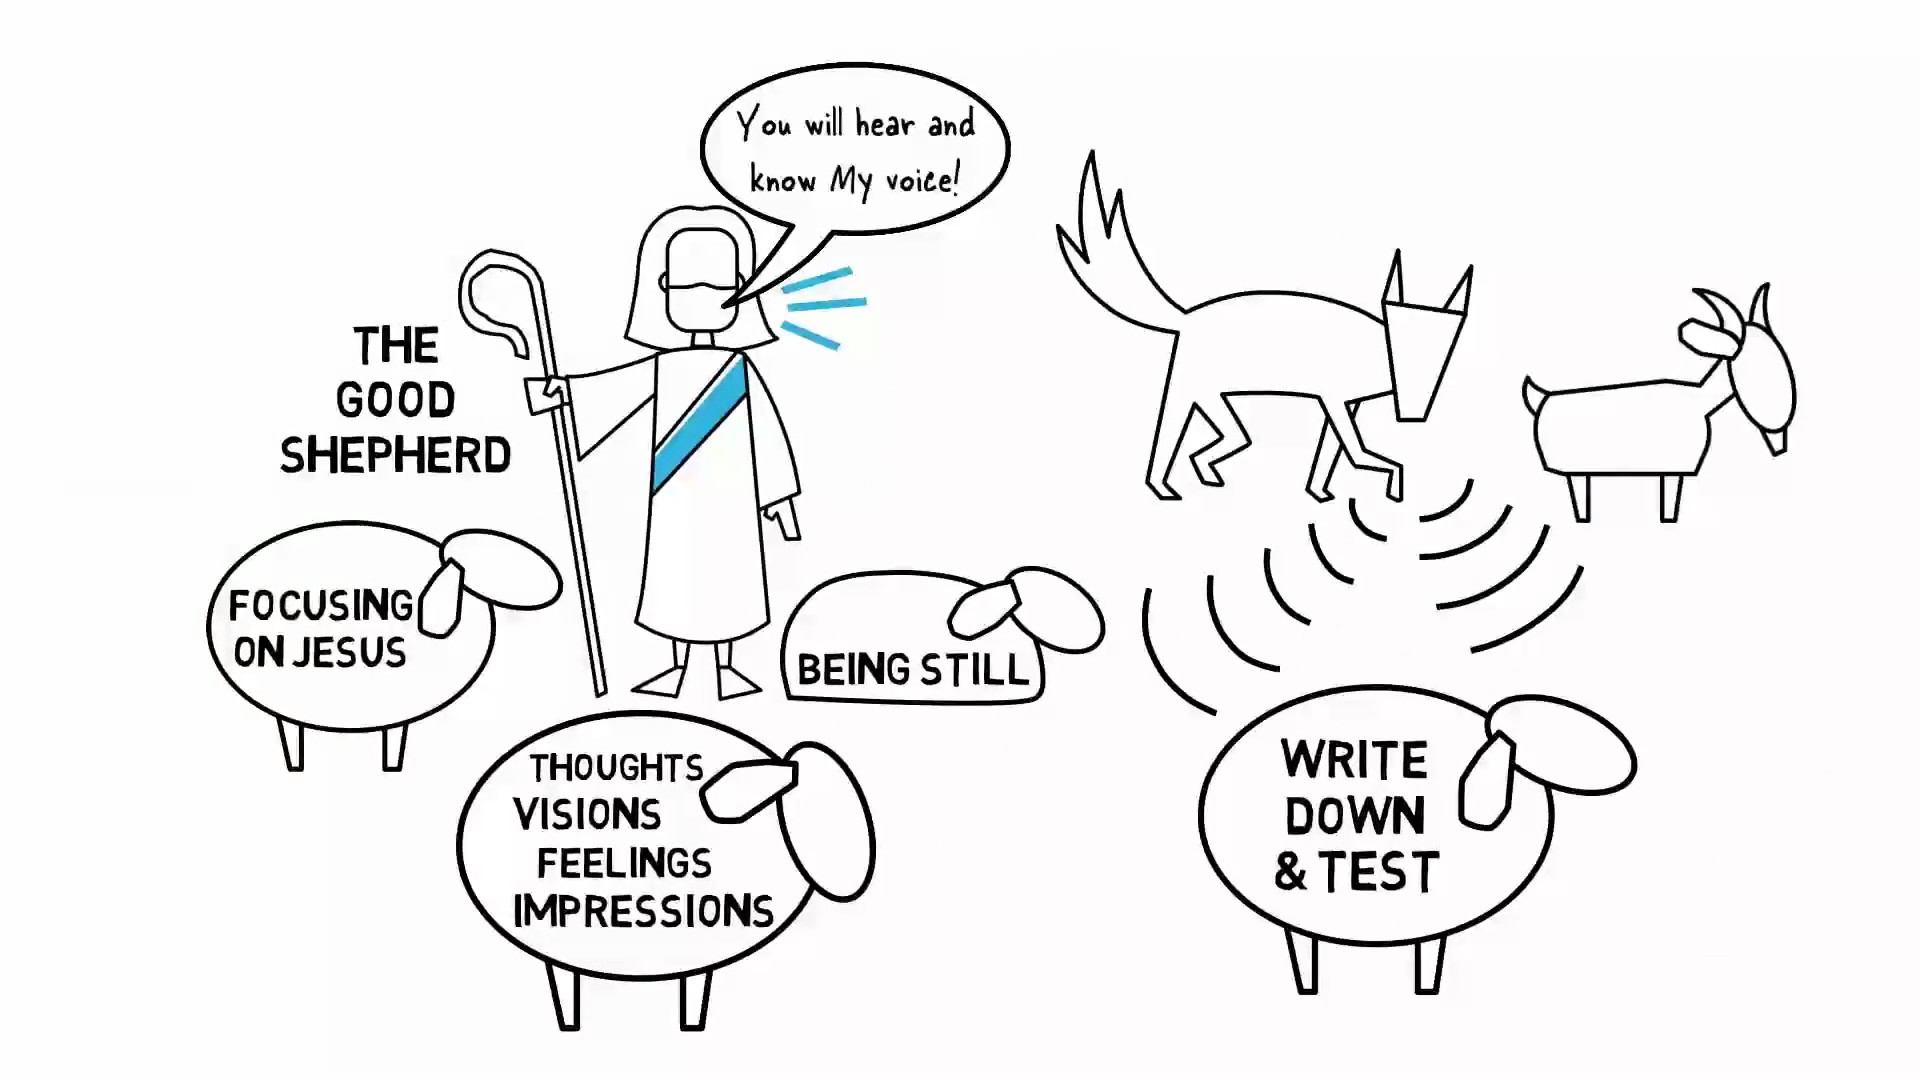 You will hear and
know My voice!
THE
GOOD
SHEPHERD
FOCUSING
ON JESUS
BEING STILL
THOUGHTS
VISIONS
FEELINGS
IMPRESSIONS
WRITE
DOWN
& TEST